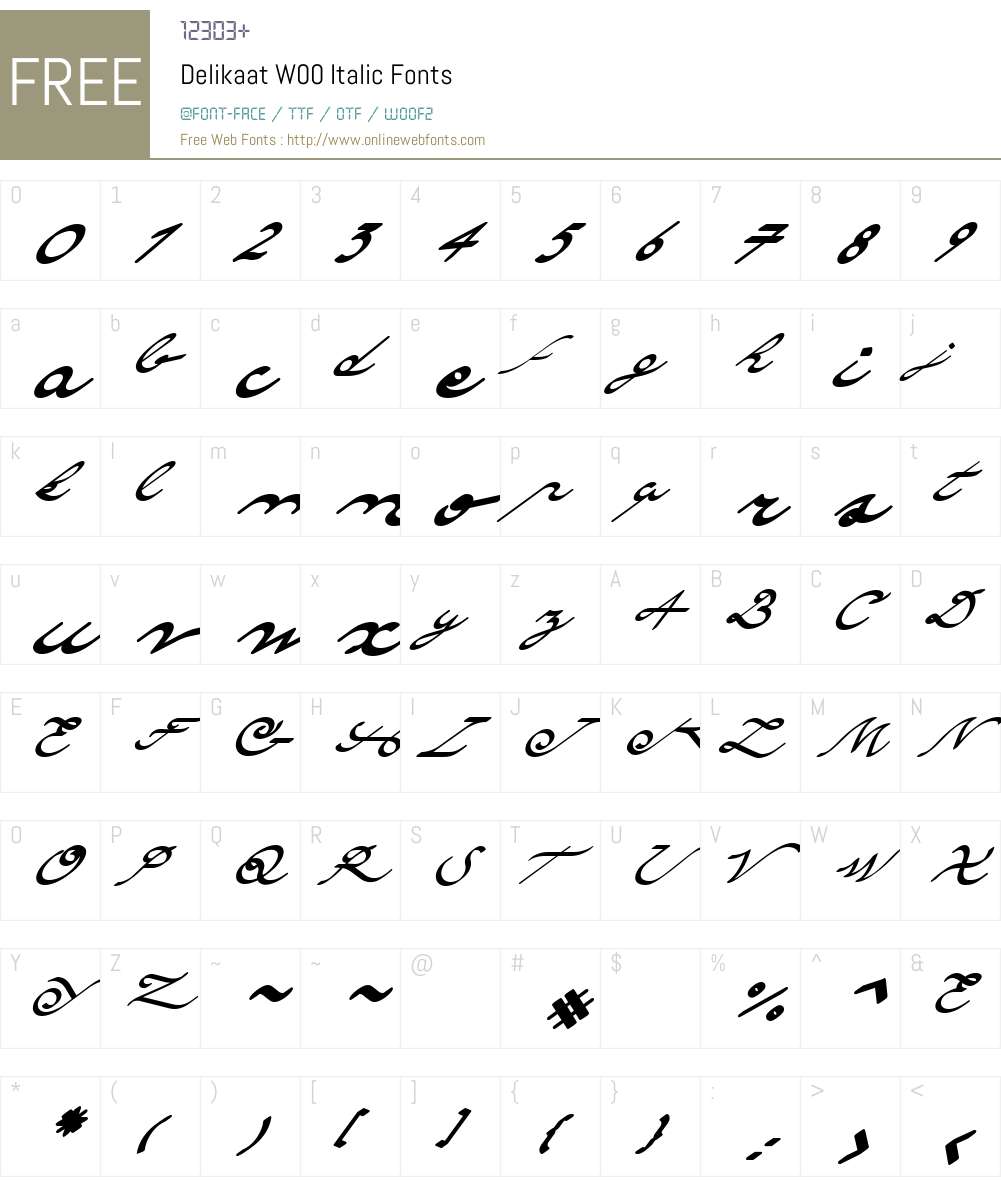 FREE
12303+
Delikaat W00 Italic Fonts
@FONT-FACE / TTF / OTF / WOOF2
Free Web Fonts : http://www.onlinewebfonts.com
0 1 2 3 4 5 6 7 8 9
0 1 2 3 4 5 6 7 8 9
a b c d e f g h i j
a b c d e f g h i j
k l m n o p q r s t
k l m n o p q r s t
u v w x y z A B C D
u v w x y z A B C D
E F G H I J K L M N
E F G H I J K L M N
O P Q R S T U V W X
O P Q R S T U V W X
Y Z ~ ~ @ # $ % ^ &
Y Z ~ ~ # % ^ &
* ( ) [ ] { } : > <
* ( ) [ ] { } : > <